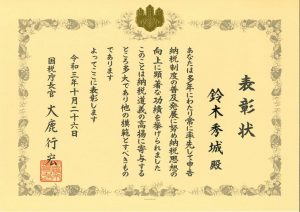 表彰状
鈴木秀城殿
あなたは多年にわたり常に率先して申告
納税制度の普及発展に努め納税思想の
向上に顕著な功績を挙げられました
このことは納税道義の高揚に寄与する
ところ多大であり他の模範とすべきもの
であります
よってここに表彰します
令和三年十月二十六日
国税庁長官 大鹿行宏